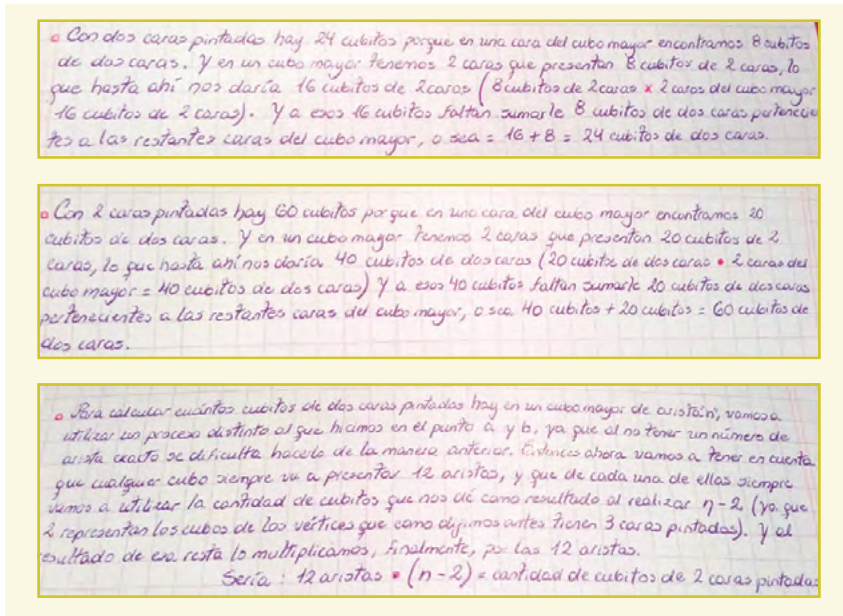 Con dos caras pintadas hay 24 cubitos porque en una cara del cubo mayor encontramos 8 cubitos
de dos caras. Y en un cubo mayor tenemos 2 caras que presentan 8 cubitos de 2 caras, lo
que hasta ahí nos daría 16 cubitos de 2 caras (8 cubitos de 2 caras × 2 caras del cubo mayor
16 cubitos de 2 caras). Y a esos 16 cubitos faltan sumarle 8 cubitos de dos caras pertenecien
tes a las restantes caras del cubo mayor, o sea = 16 + 8 = 24 cubitos de dos caras.
Con 2 caras pintadas hay 60 cubitos porque en una cara del cubo mayor encontramos 20
cubitos de dos caras. Y en un cubo mayor tenemos 2 caras que presentan 20 cubitos de 2
caras, lo que hasta ahí nos daría 40 cubitos de dos caras (20 cubitos de dos caras • 2 caras del
cubo mayor = 40 cubitos de dos caras) Y a esos 40 cubitos faltan sumarle 20 cubitos de dos caras
pertenecientes a las restantes caras del cubo mayor, o sea, 40 cubitos + 20 cubitos = 60 cubitos de
dos caras.
Para calcular cuántos cubitos de dos caras pintadas hay en un cubo mayor de arista "n", vamos a
utilizar un proceso distinto al que hicimos en el punto a y b, ya que al no tener un número de
arista exacto se dificulta hacerlo de la manera anterior. Entonces ahora vamos a tener en cuenta
que cualquier cubo siempre va a presentar 12 aristas, y que de cada una de ellas siempre
vamos a utilizar la cantidad de cubitos que nos dé como resultado al realizar n-2 (ya que
2 representan los cubos de los vértices que como dijimos antes tienen 3 caras pintadas). Y al
resultado de esa resta lo multiplicamos, finalmente, por las 12 aristas.
Sería : 12 aristas • (n-2) = cantidad de cubitos de 2 caras pintadas